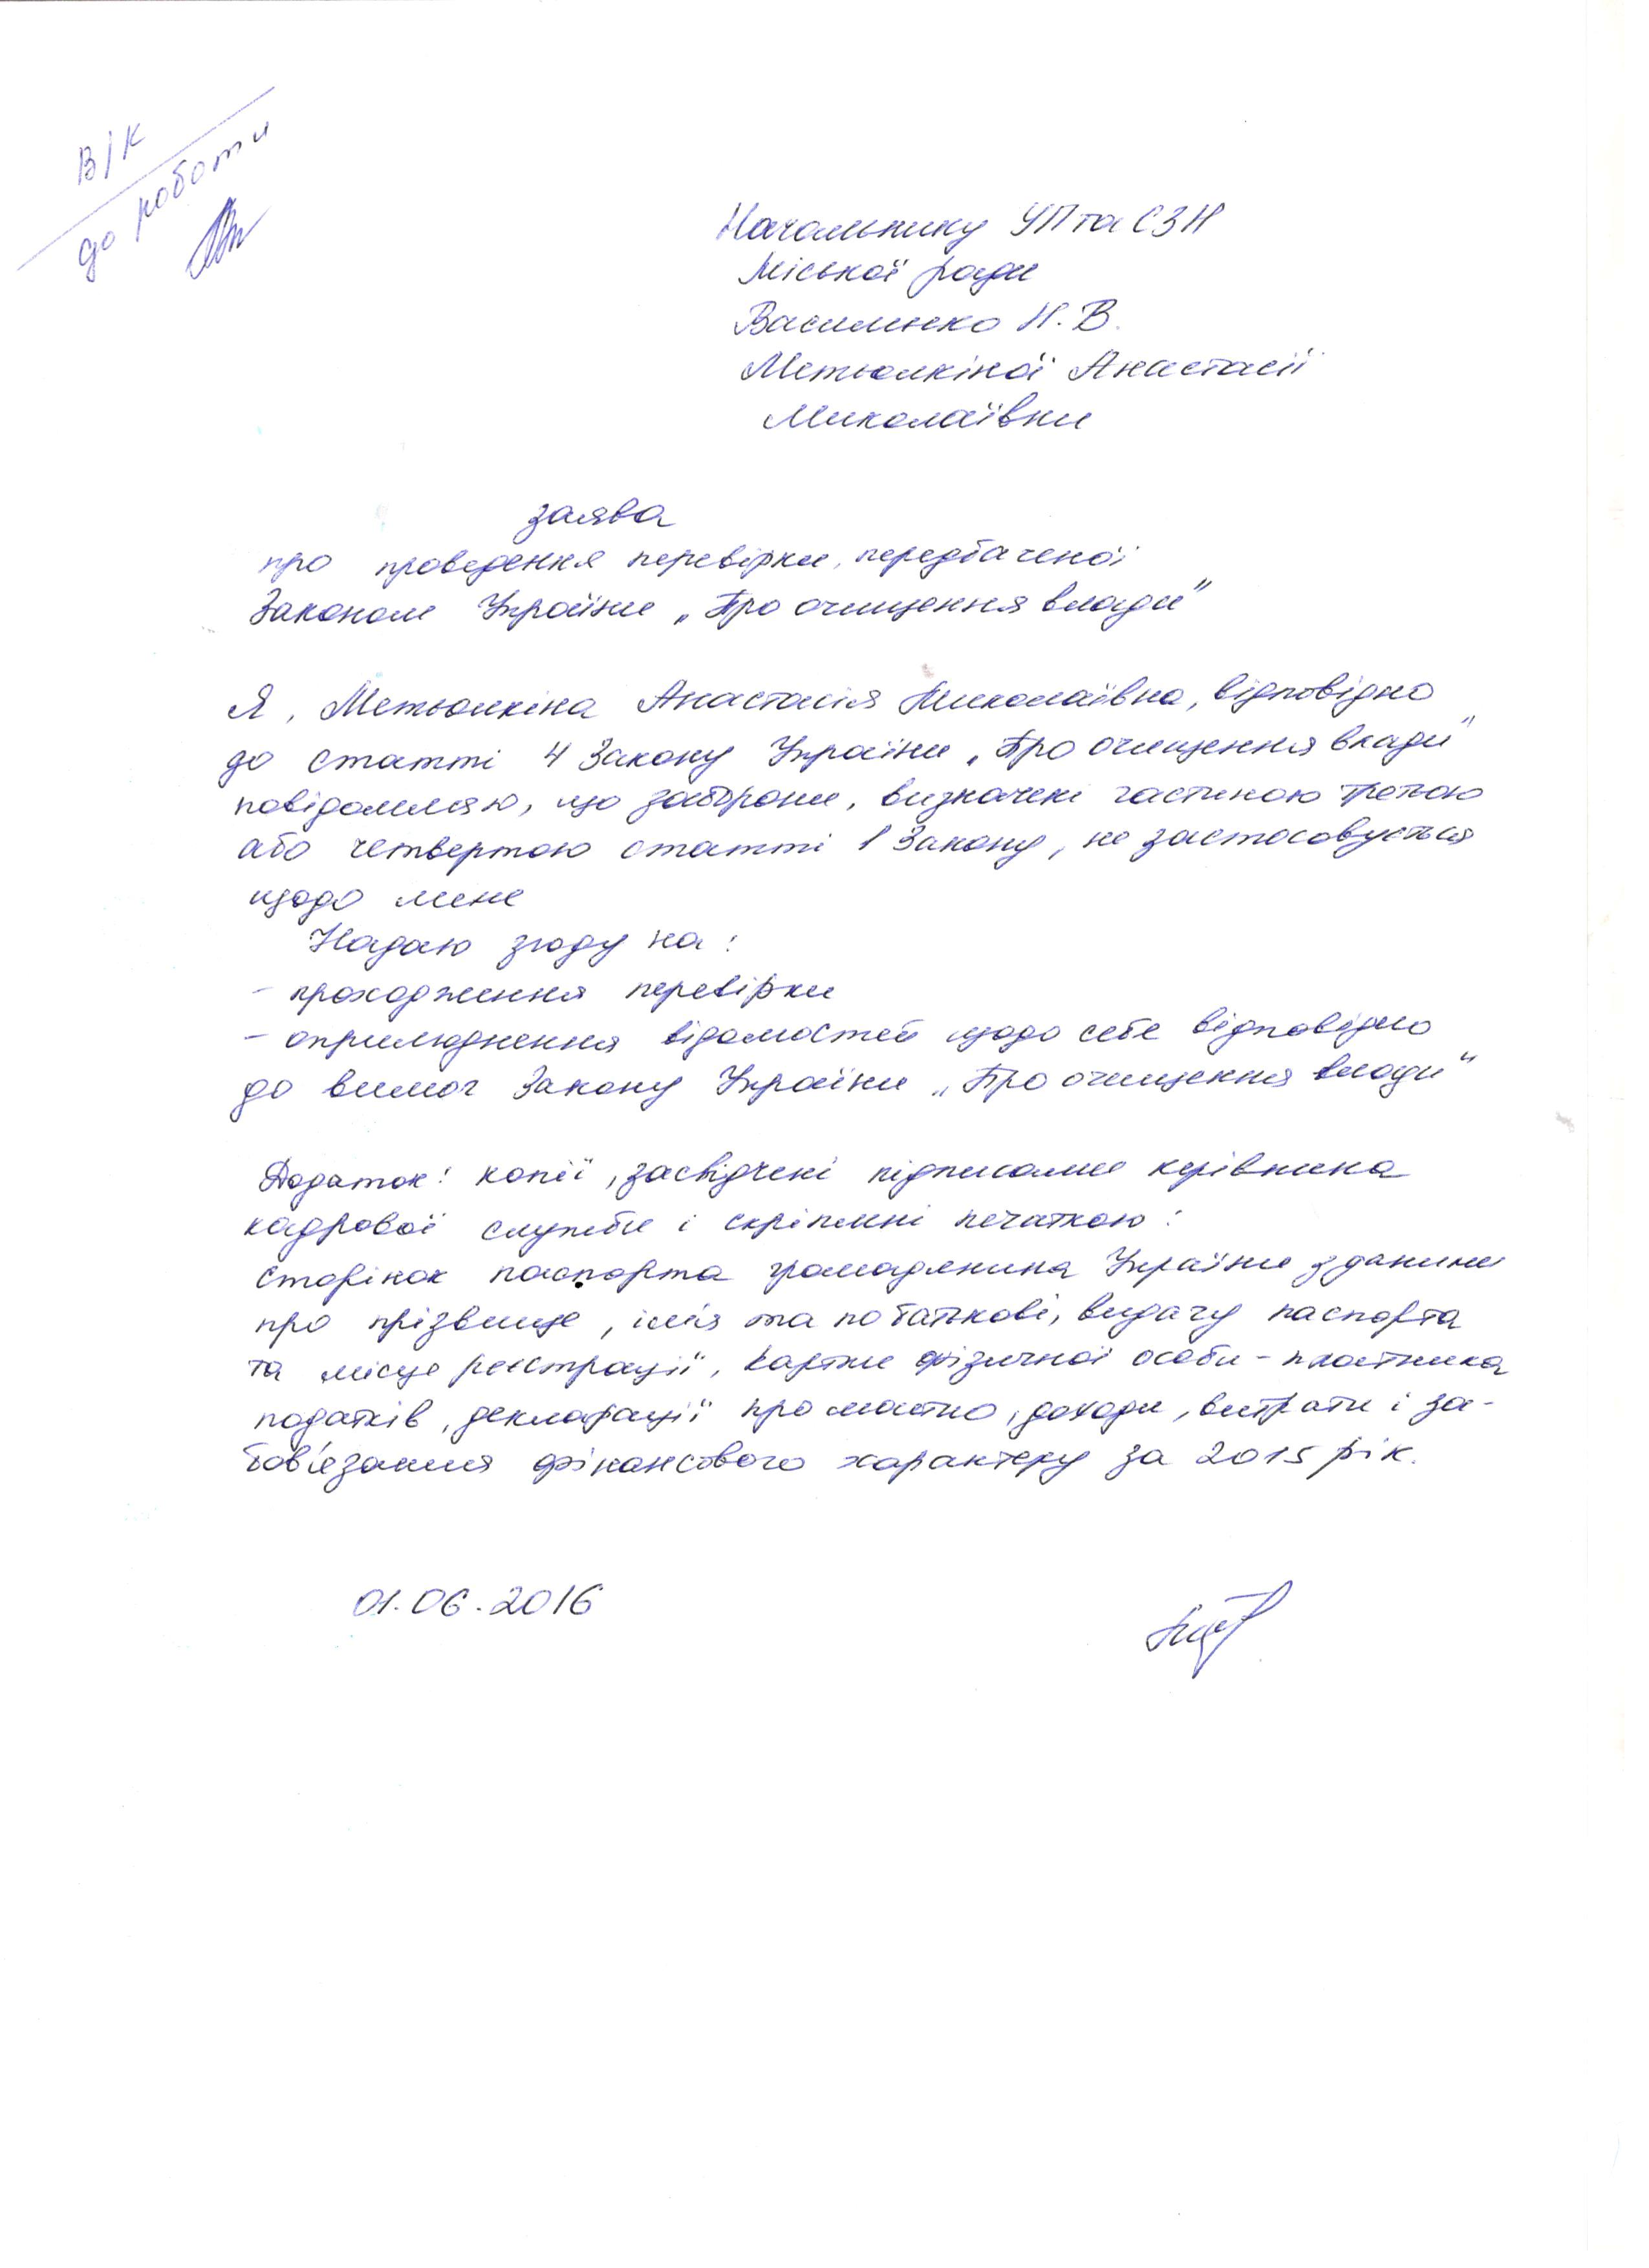 В/К
до роботи
Начальнику УП та СЗН
Міської ради
Василенко Н. В.
Метьолкіної Анастасії
Миколаївни
заява
про проведення перевірки, передбаченої
Законом України „Про очищення влади"
Я, Метьолкіна Анастасія Миколаївна, відповідно
до статті 4 Закону України „Про очищення влади"
повідомляю, що заборони, визначені частиною третьою
або четвертою статті 1 Закону, не застосовується
щодо мене
Надаю згоду на:
- проходження перевірки
- оприлюднення відомостей щодо себе відповідно
до вимог Закону України „Про очищення влади"
Додаток: копії, засвідчені підписами керівника
кадрової служби і скріплені печаткою:
сторінок паспорта громадянина України з даними
про прізвище, ім'я та по батькові, видачу паспорта
та місце реєстрації, картки фізичної особи - платника
податків, декларації про майно, доходи, витрати і за-
бов'язання фінансового характеру за 2015 рік.
01.06.2016